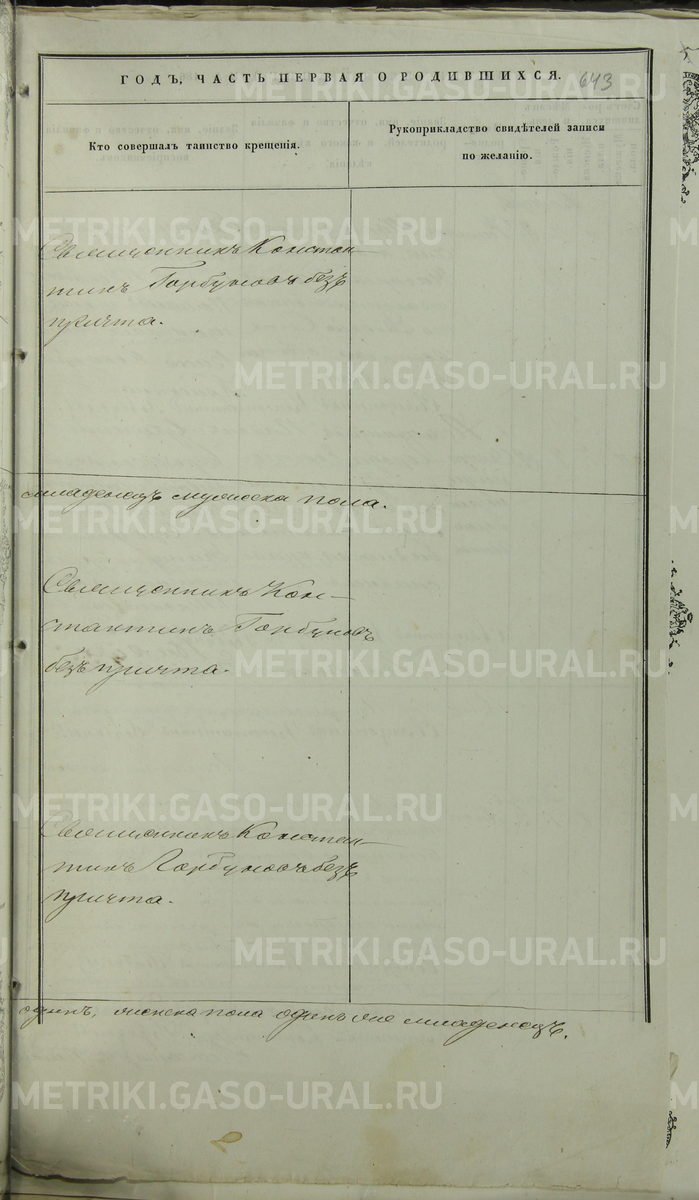 ГОДЪ, ЧАСТЬ ПЕРВАЯ О РОДИВШИХСЯ. 643
Кто совершалъ таинство крещенія.
Рукоприкладство свидѣтелей записи
по желанію.
Священникъ Констан
тинъ Горбуновъ безъ
причта.
младенецъ мужеска пола.
Священникъ Кон-
стантинъ Горбуновъ
безъ причта.
Священникъ Констан
тинъ Горбуновъ безъ
причта.
одинъ, женска пола одинъ же младенецъ.
METRIKI.GASO-URAL.RU